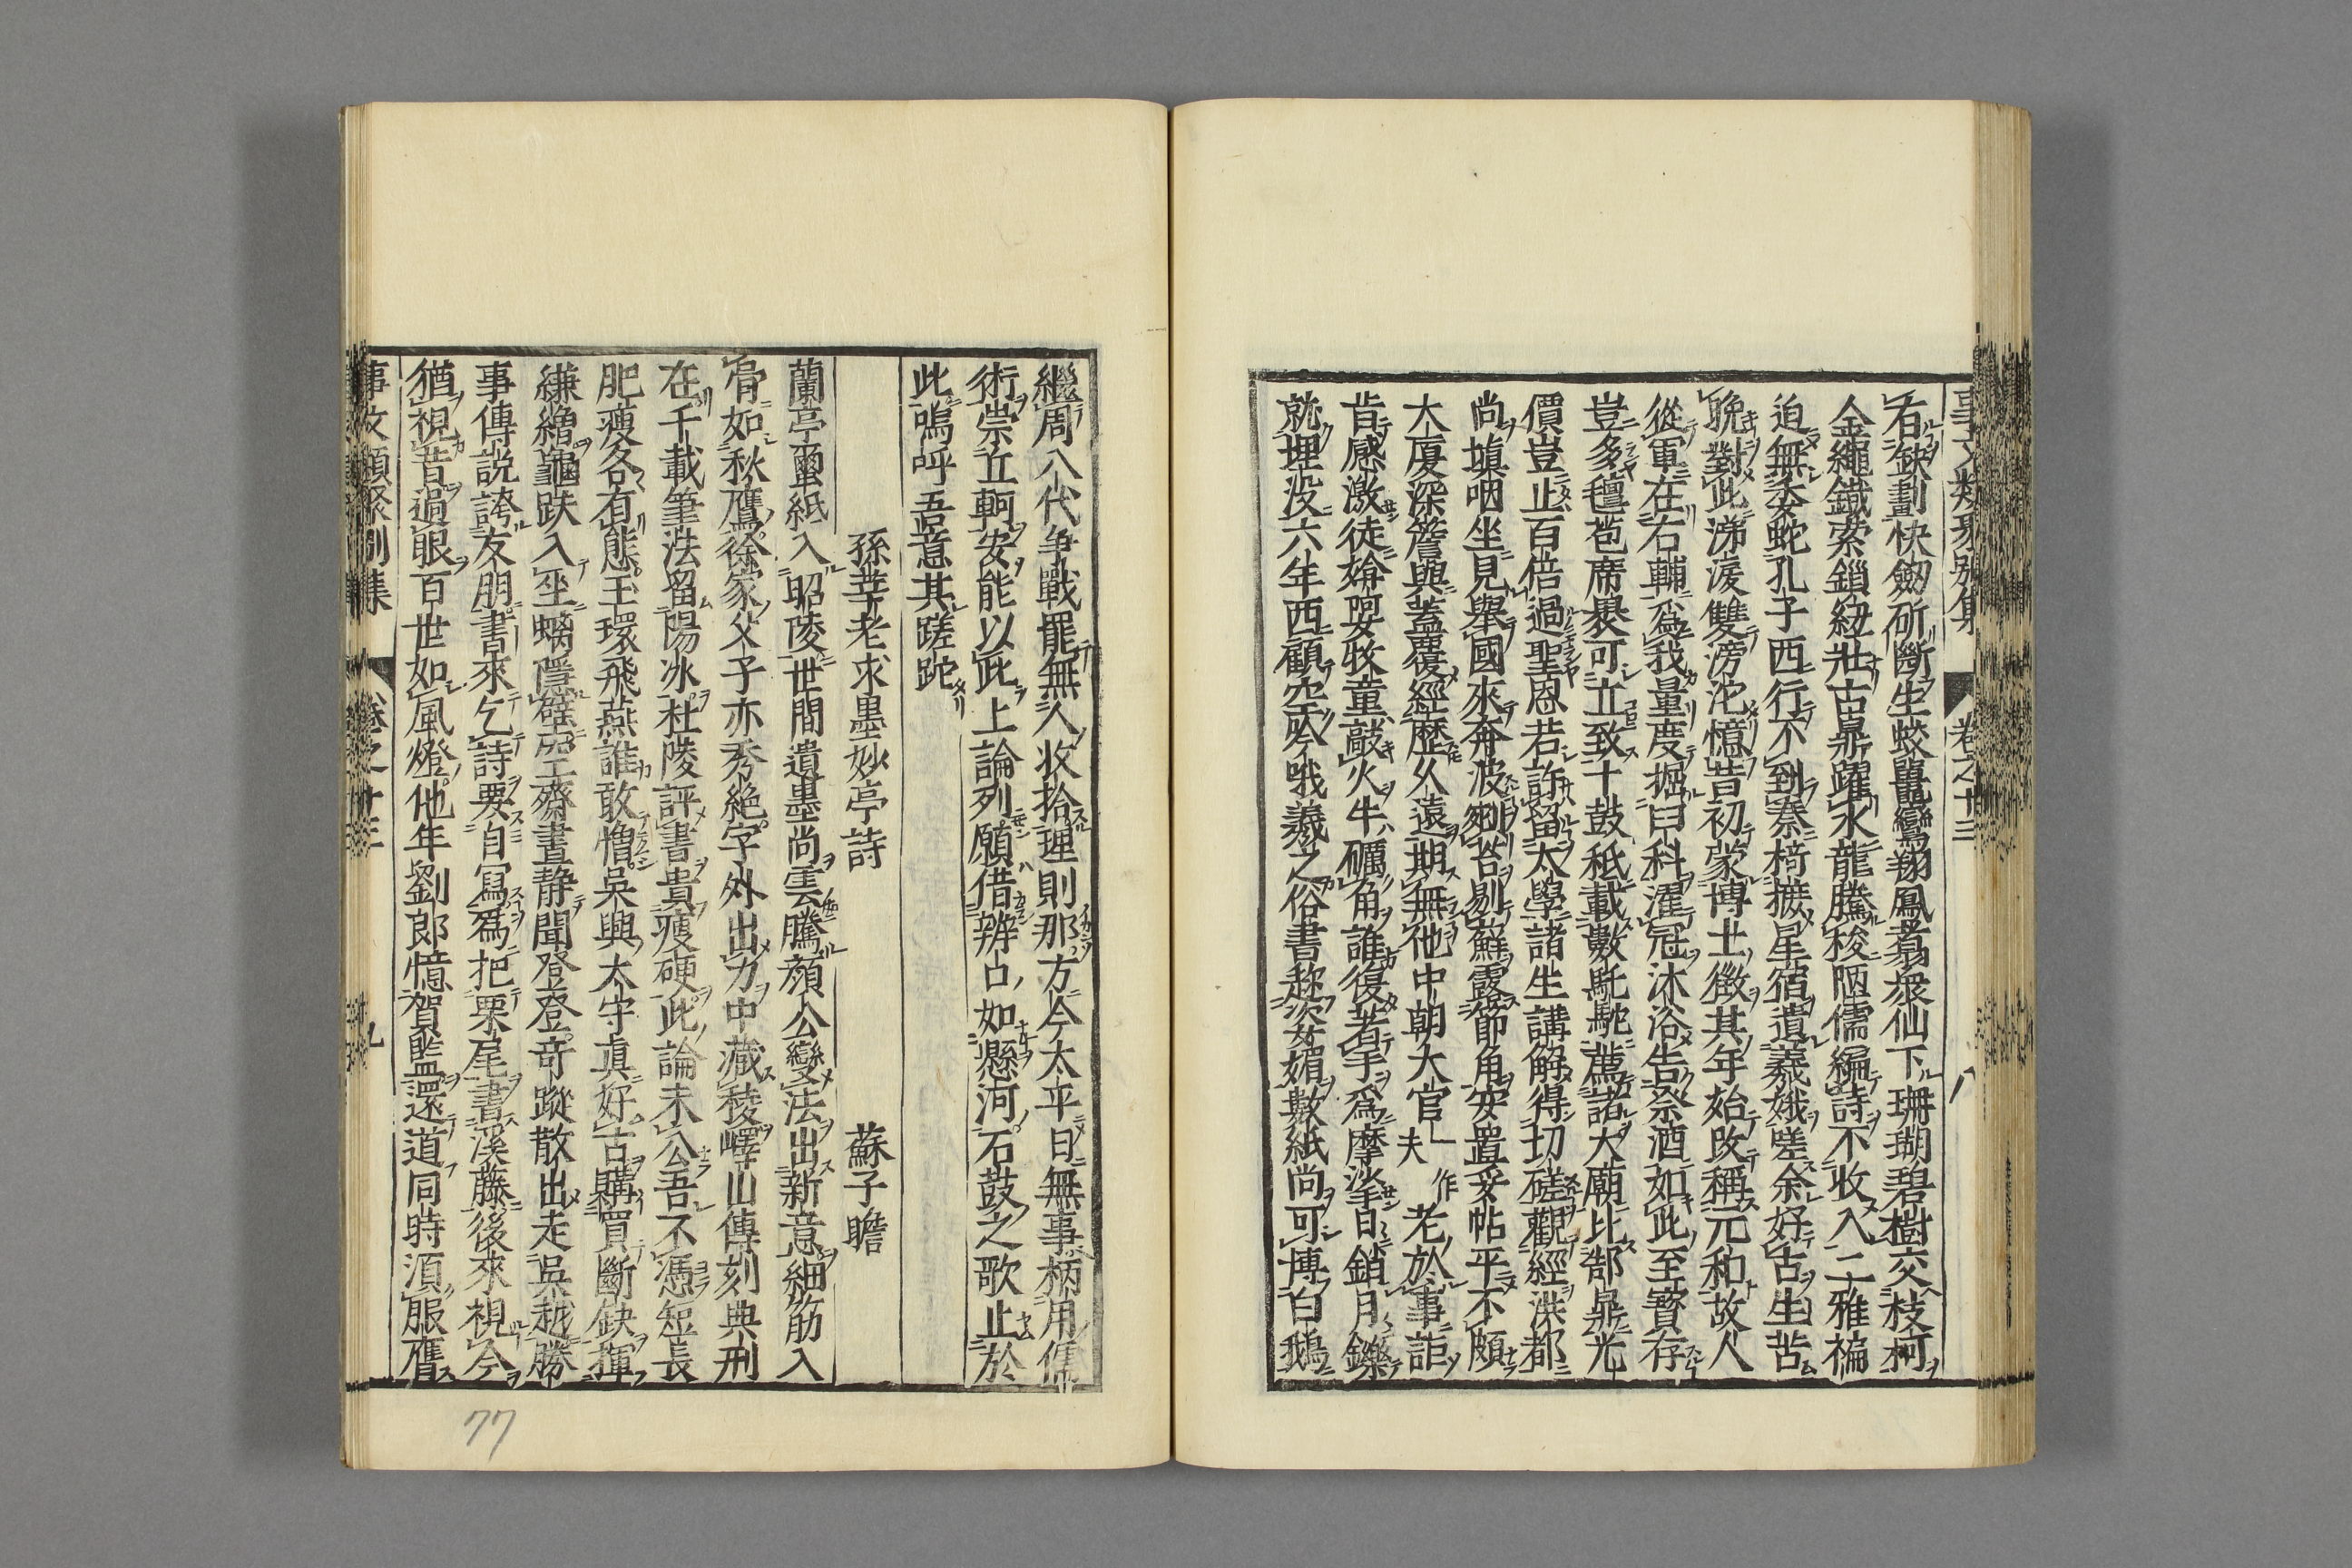 事文類聚別集 卷之十三 八
有缺劃快劒斫斷生蛟鼉鸞翔鳳翥衆仙下珊瑚碧樹交枝柯
金繩鐵索鎖紐壯古鼎躍水龍騰梭陋儒編詩不收入二雅褊
迫無委蛇孔子西行不到秦掎摭星宿遺羲娥嗟余好古生苦
晚對此涕淚雙滂沱憶昔初蒙博士徵其年始改稱元和故人
從軍在右輔爲我量度掘臼科濯冠沐浴告祭酒如此至寶存
豈多氊苞席褁可立致十鼓秖載數馲駝薦諸大廟比郜鼎光
價豈止百倍過聖恩若許留太學諸生講解得切磋觀經洪都
尚塡咽坐見舉國來奔波剜苔剔蘇露節角安置妥帖平不頗
大厦深簷與蓋覆經歷久遠期無他中朝大官一作夫老於事詎
肯感激徒媕婀牧童敲火牛礪角誰復著手爲摩挲日銷月鑠
就埋没六年西顧空吟哦羲之俗書趂姿媚數紙尚可博白鵝
繼周八代争戰罷無人收拾理則那方今太平日無事柄用儒
術崇丘軻安能以此上論列願借辨口如懸河石鼓之歌止於
此嗚呼吾意其蹉跎
孫莘老求墨妙亭詩 蘇子瞻
蘭亭蠒紙入昭陵世間遺墨尚雲騰顔公變法出新意細筋入
骨如秋鷹徐家父子亦秀絶字外出力中藏稜嶧山傳刻典刑
在千載筆法留陽冰杜陵評書貴瘦硬此論未公吾不憑短長
肥瘦各有態玉環飛燕誰敢憎吳興太守真好古購買斷缺揮
縑繒龜趺入坐螭隱壁空齋晝静聞登登竒蹤散出走吳越勝
事傳説誇友朋書來乞詩要自冩爲把栗尾書溪藤後來視今
猶視昔過眼百世如風燈他年劉郎憶賀監還道同時湏服膺
事文類聚別集 卷之十三 九
77